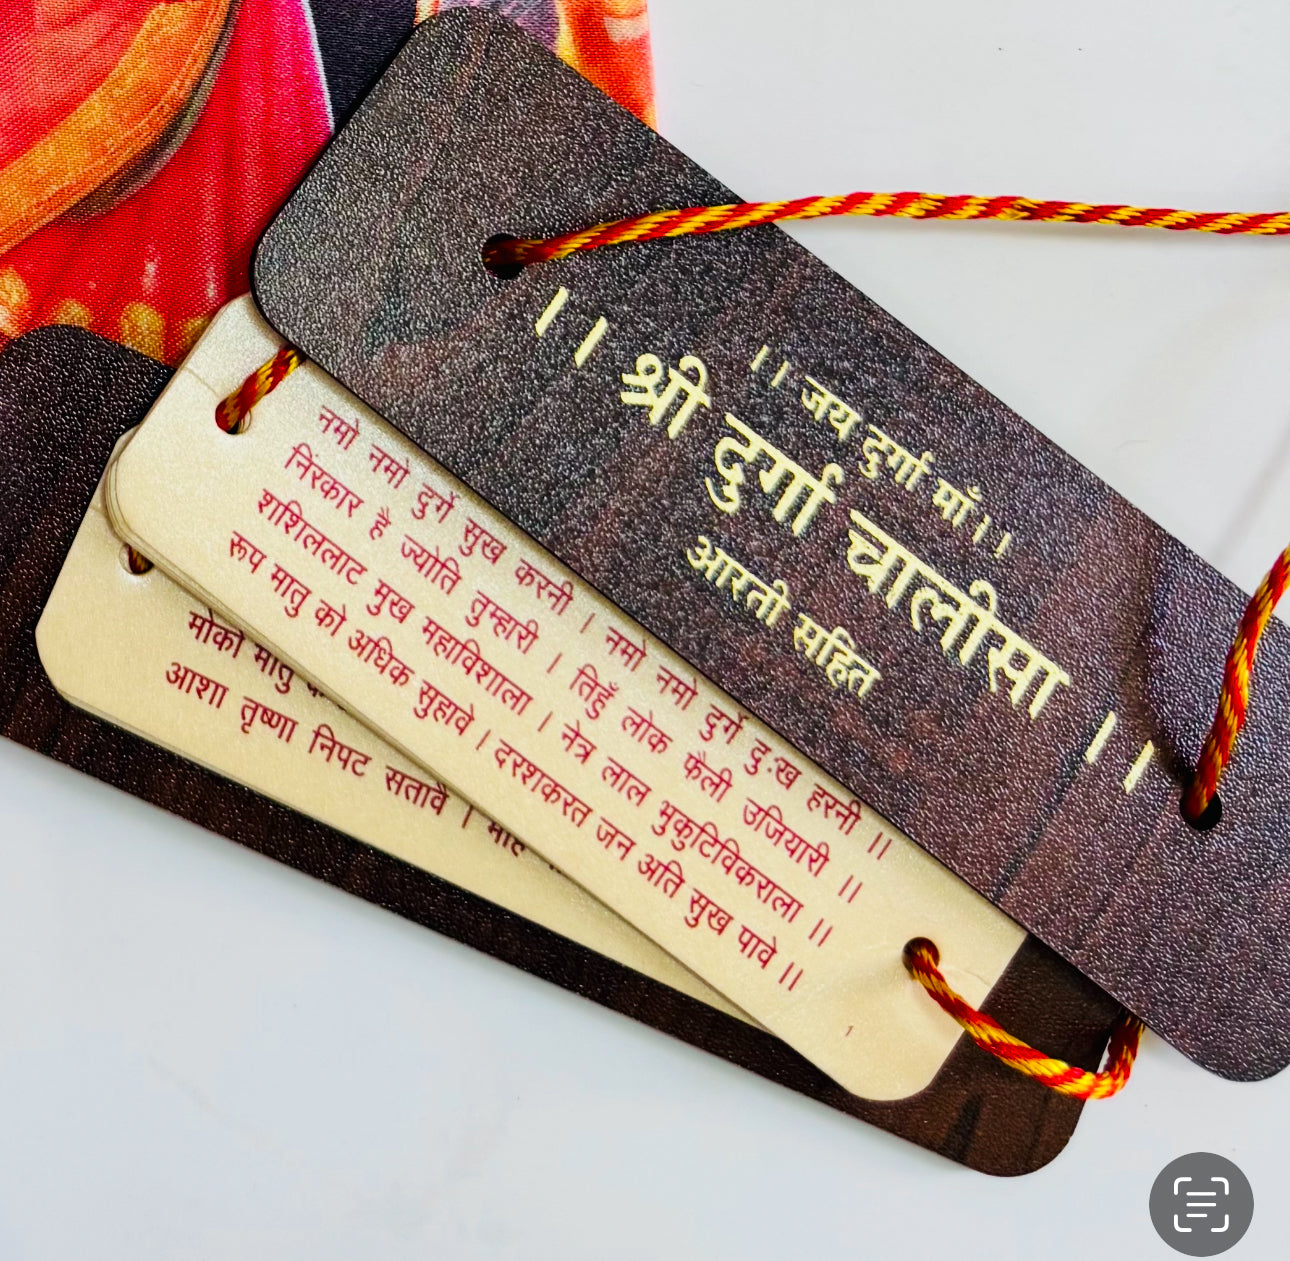 ।। जय दुर्गा माँ ।।
।। श्री दुर्गा चालीसा ।।
आरती सहित
नमो नमो दुर्गे सुख करनी । नमो नमो दुर्गे दुःख हरनी ।।
निंरकार है ज्योति तुम्हारी । तिहुँ लोक फैली उजियारी ।।
शशिललाट मुख महाविशाला । नेत्र लाल भुकुटिविकराला ।।
रूप मातु को अधिक सुहावे । दरशकरत जन अति सुख पावे ।।
1
मोको मातु
आशा तृष्णा निपट सतावे ।